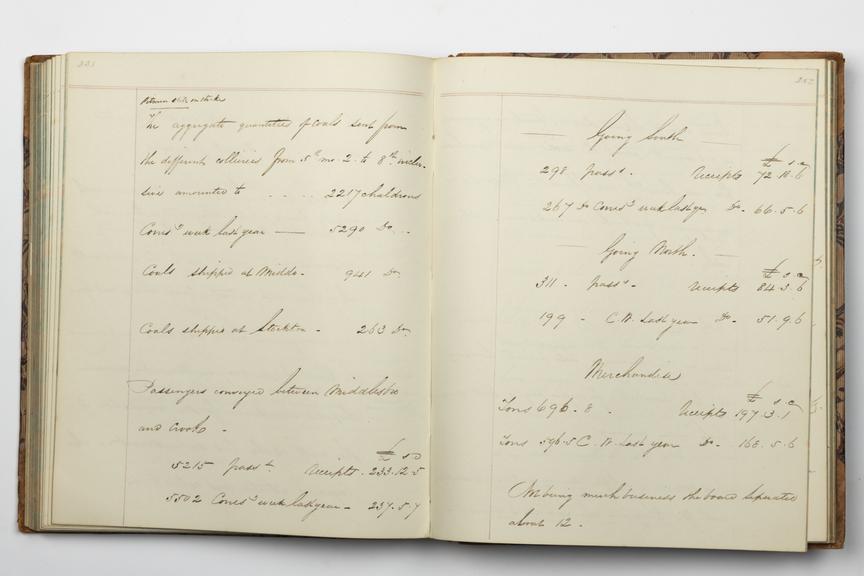 331
The aggregate quantities of Coals sent from
the different collieries from 5th mo. 2 to 8th inclu-
sive amounted to .... 2217 chaldrons
Corresd week last year — 5290 Do ..
Coals shipped at Middo. 941 Do
Coals shipped at Stockton - 263 Do
Passengers conveyed between Middlesbro
and Crook -
£ s D
5215 passrs Receipts. 233.12.5
5502 Corresd week last year - 237.5.7
332
Going South
£ s d
298 passrs. Receipts 72.18.6
267 Do Corresd week last year Do- 66.5.6
Going North.
£ s d
311 - passrs- Receipts 84.3.6
199 - C.W. Last year Do- 51.9.6
Merchandise
£ s d
Tons 696.8. Receipts 197.3.1
Tons 596.5 C.W. Last year Do- 168.5.6
Not being much business the board separated
about 12.